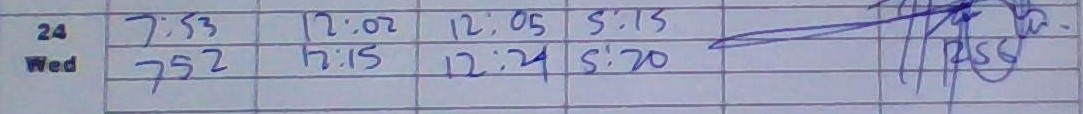 24 7:53 12:02 12:05 5:15
Wed 752 12:15 12:24 5:20